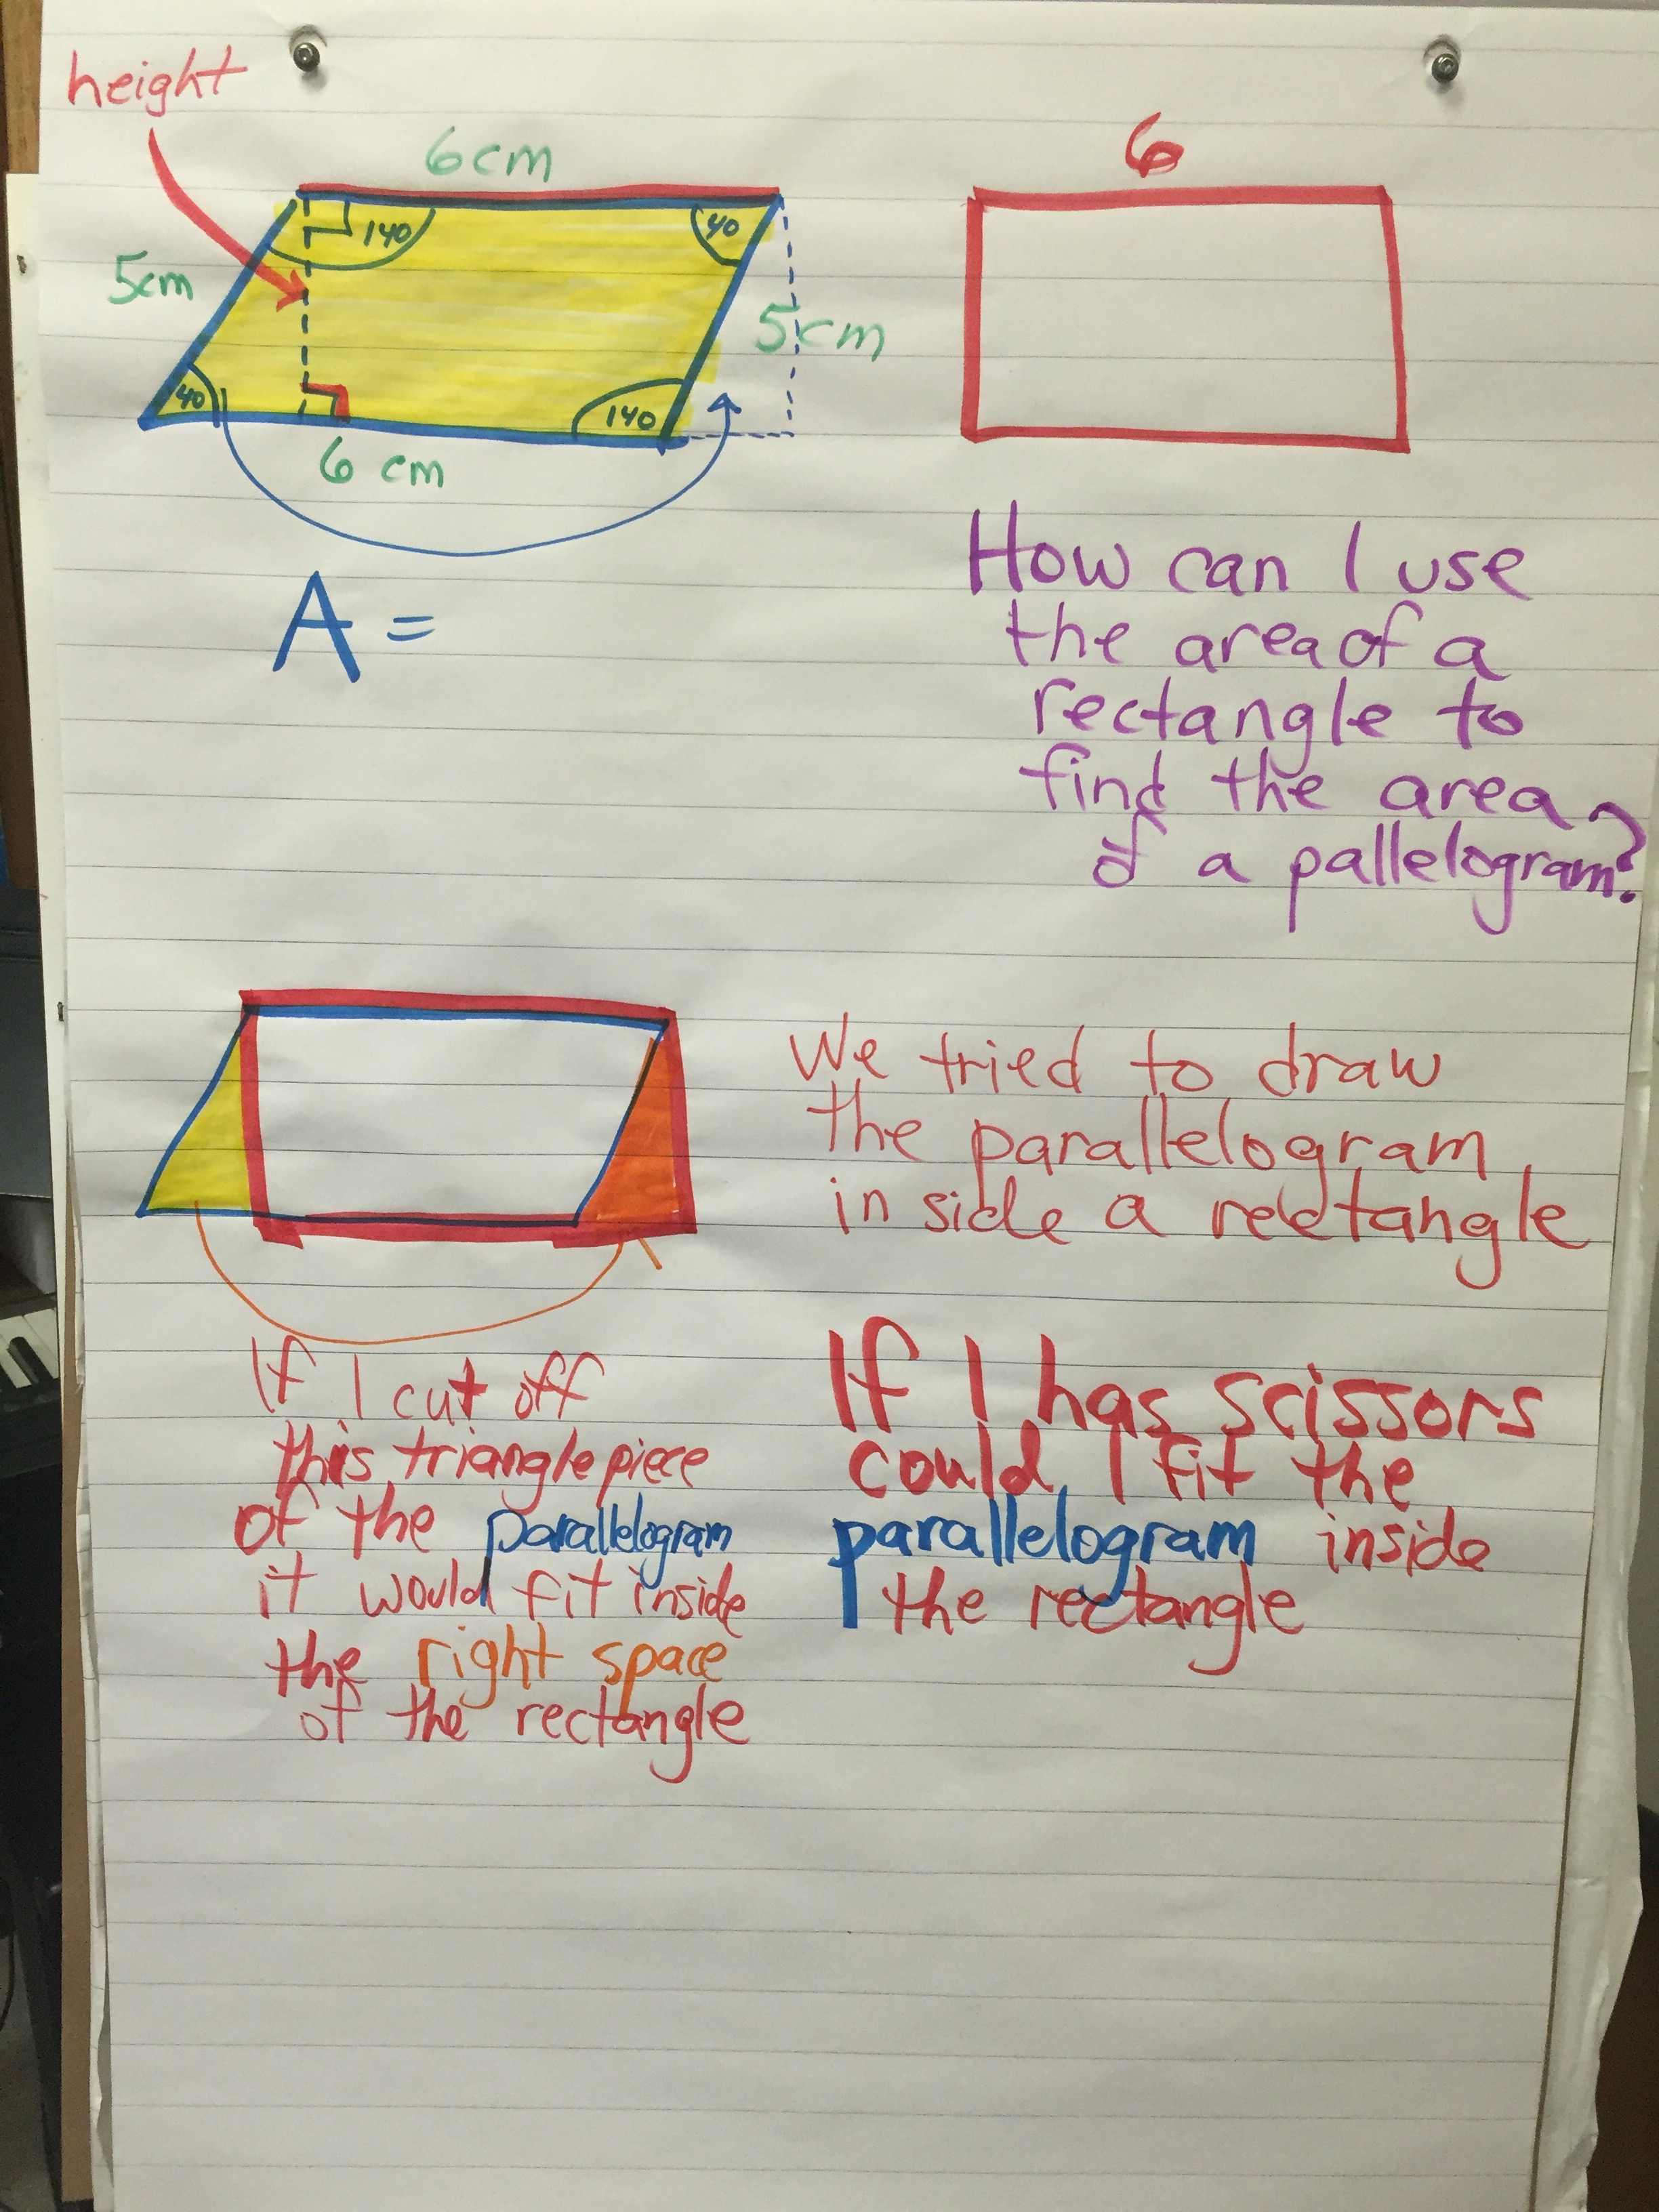 height
6cm
6
140
40
5cm
5cm
40
140
6 cm
A =
How can I use
the area of a
rectangle to
find the area
of a pallelogram?
We tried to draw
the parallelogram
inside a rectangle
If I cut off
this triangle piece
of the parallelogram
it would fit inside
the right space
of the rectangle
If I has scissors
could I fit the
parallelogram inside
the rectangle